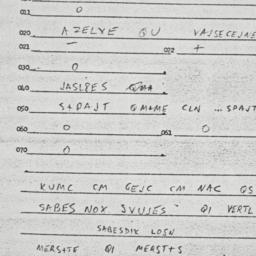 011 0
020 AZELYE QU VAJSECEJNE
021 — 022 +
030 0
040 JASLPES
050 CLN ...SPAJT
060 0 061 0
070 0
KUMC CM GEJC CM NAC QS
SABES NOX SVUJES QI VERTL
SABESDIK LOSN
MERSTE QI MERSTTS